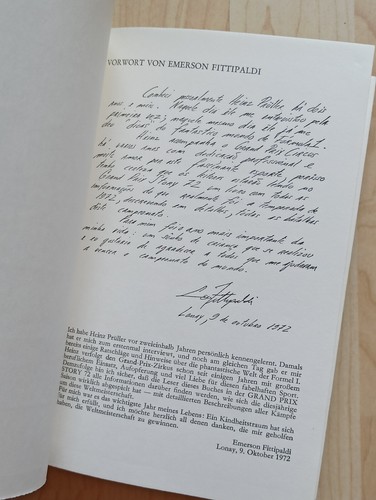 VORWORT VON EMERSON FITTIPALDI
Conheci pessoalmente Heinz Prüller, há dois
anos e meio. Naquele dia ele me entrevistou pela
primeira vez; naquele mesmo dia ele já me
deu "dicas" do fantastico mundo da Formula I.
Heinz acompanha o Grand Prix Circus
há varios anos com dedicação profissional e
muito amor por este fascinante esporte, porisso
tenho certeza que os leitores estarão lendo no
Grand Prix Story 72, um livro com todas as
informações do que realmente foi a temporada de
1972, descrevendo em detalhes, todas as
deste campeonato.
Para mim foi o ano mais importante da
minha vida: um sonho de criança que se realizou
e eu gostaria de agradecer a todos que me ajudaram
a vencer o campeonato do mundo.
Fittipaldi
Lonay, 9 de outubro 1972
Ich habe Heinz Prüller vor zweieinhalb Jahren persönlich kennengelernt. Damals
hat er mich zum erstenmal interviewt, und noch am gleichen Tag gab er mir
bereits einige Ratschläge und Hinweise über die phantastische Welt der Formel I.
Heinz verfolgt den Grand-Prix-Zirkus schon seit einigen Jahren mit großem
beruflichem Einsatz, Aufopferung und viel Liebe für diesen fabelhaften Sport.
Demzufolge bin ich sicher, daß die Leser dieses Buches in der GRAND PRIX
STORY 72 alle Informationen darüber finden werden, wie sich die diesjährige
Saison wirklich abgespielt hat — mit detaillierten Beschreibungen aller Kämpfe
um diese Weltmeisterschaft.
Für mich war es das wichtigste Jahr meines Lebens: Ein Kindheitstraum hat sich
für mich erfüllt, und ich möchte herzlich all denen danken, die mir geholfen
haben, die Weltmeisterschaft zu gewinnen.
Emerson Fittipaldi
Lonay, 9. Oktober 1972